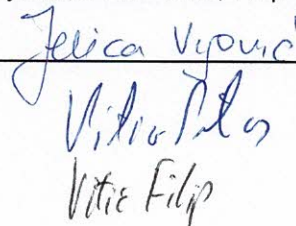 Jelica Vujović
Vitić
Vitić Filip